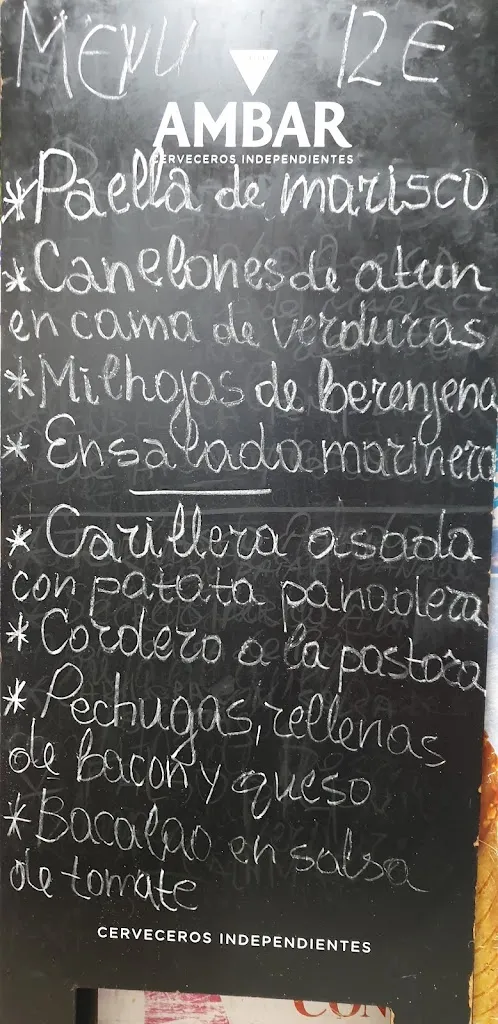 MENU 12 E
AMBAR
CERVECEROS INDEPENDIENTES
*Paella de marisco
*Canelones de atun
en cama de verduras
*Milhojas de berenjena
* Ensalada marinera
* Carillera asada
con patata panadera
*Cordero a la pastora
*Pechugas, rellenas
de bacon y queso
*Bacalao en salsa
de tomate
CERVECEROS INDEPENDIENTES
CON